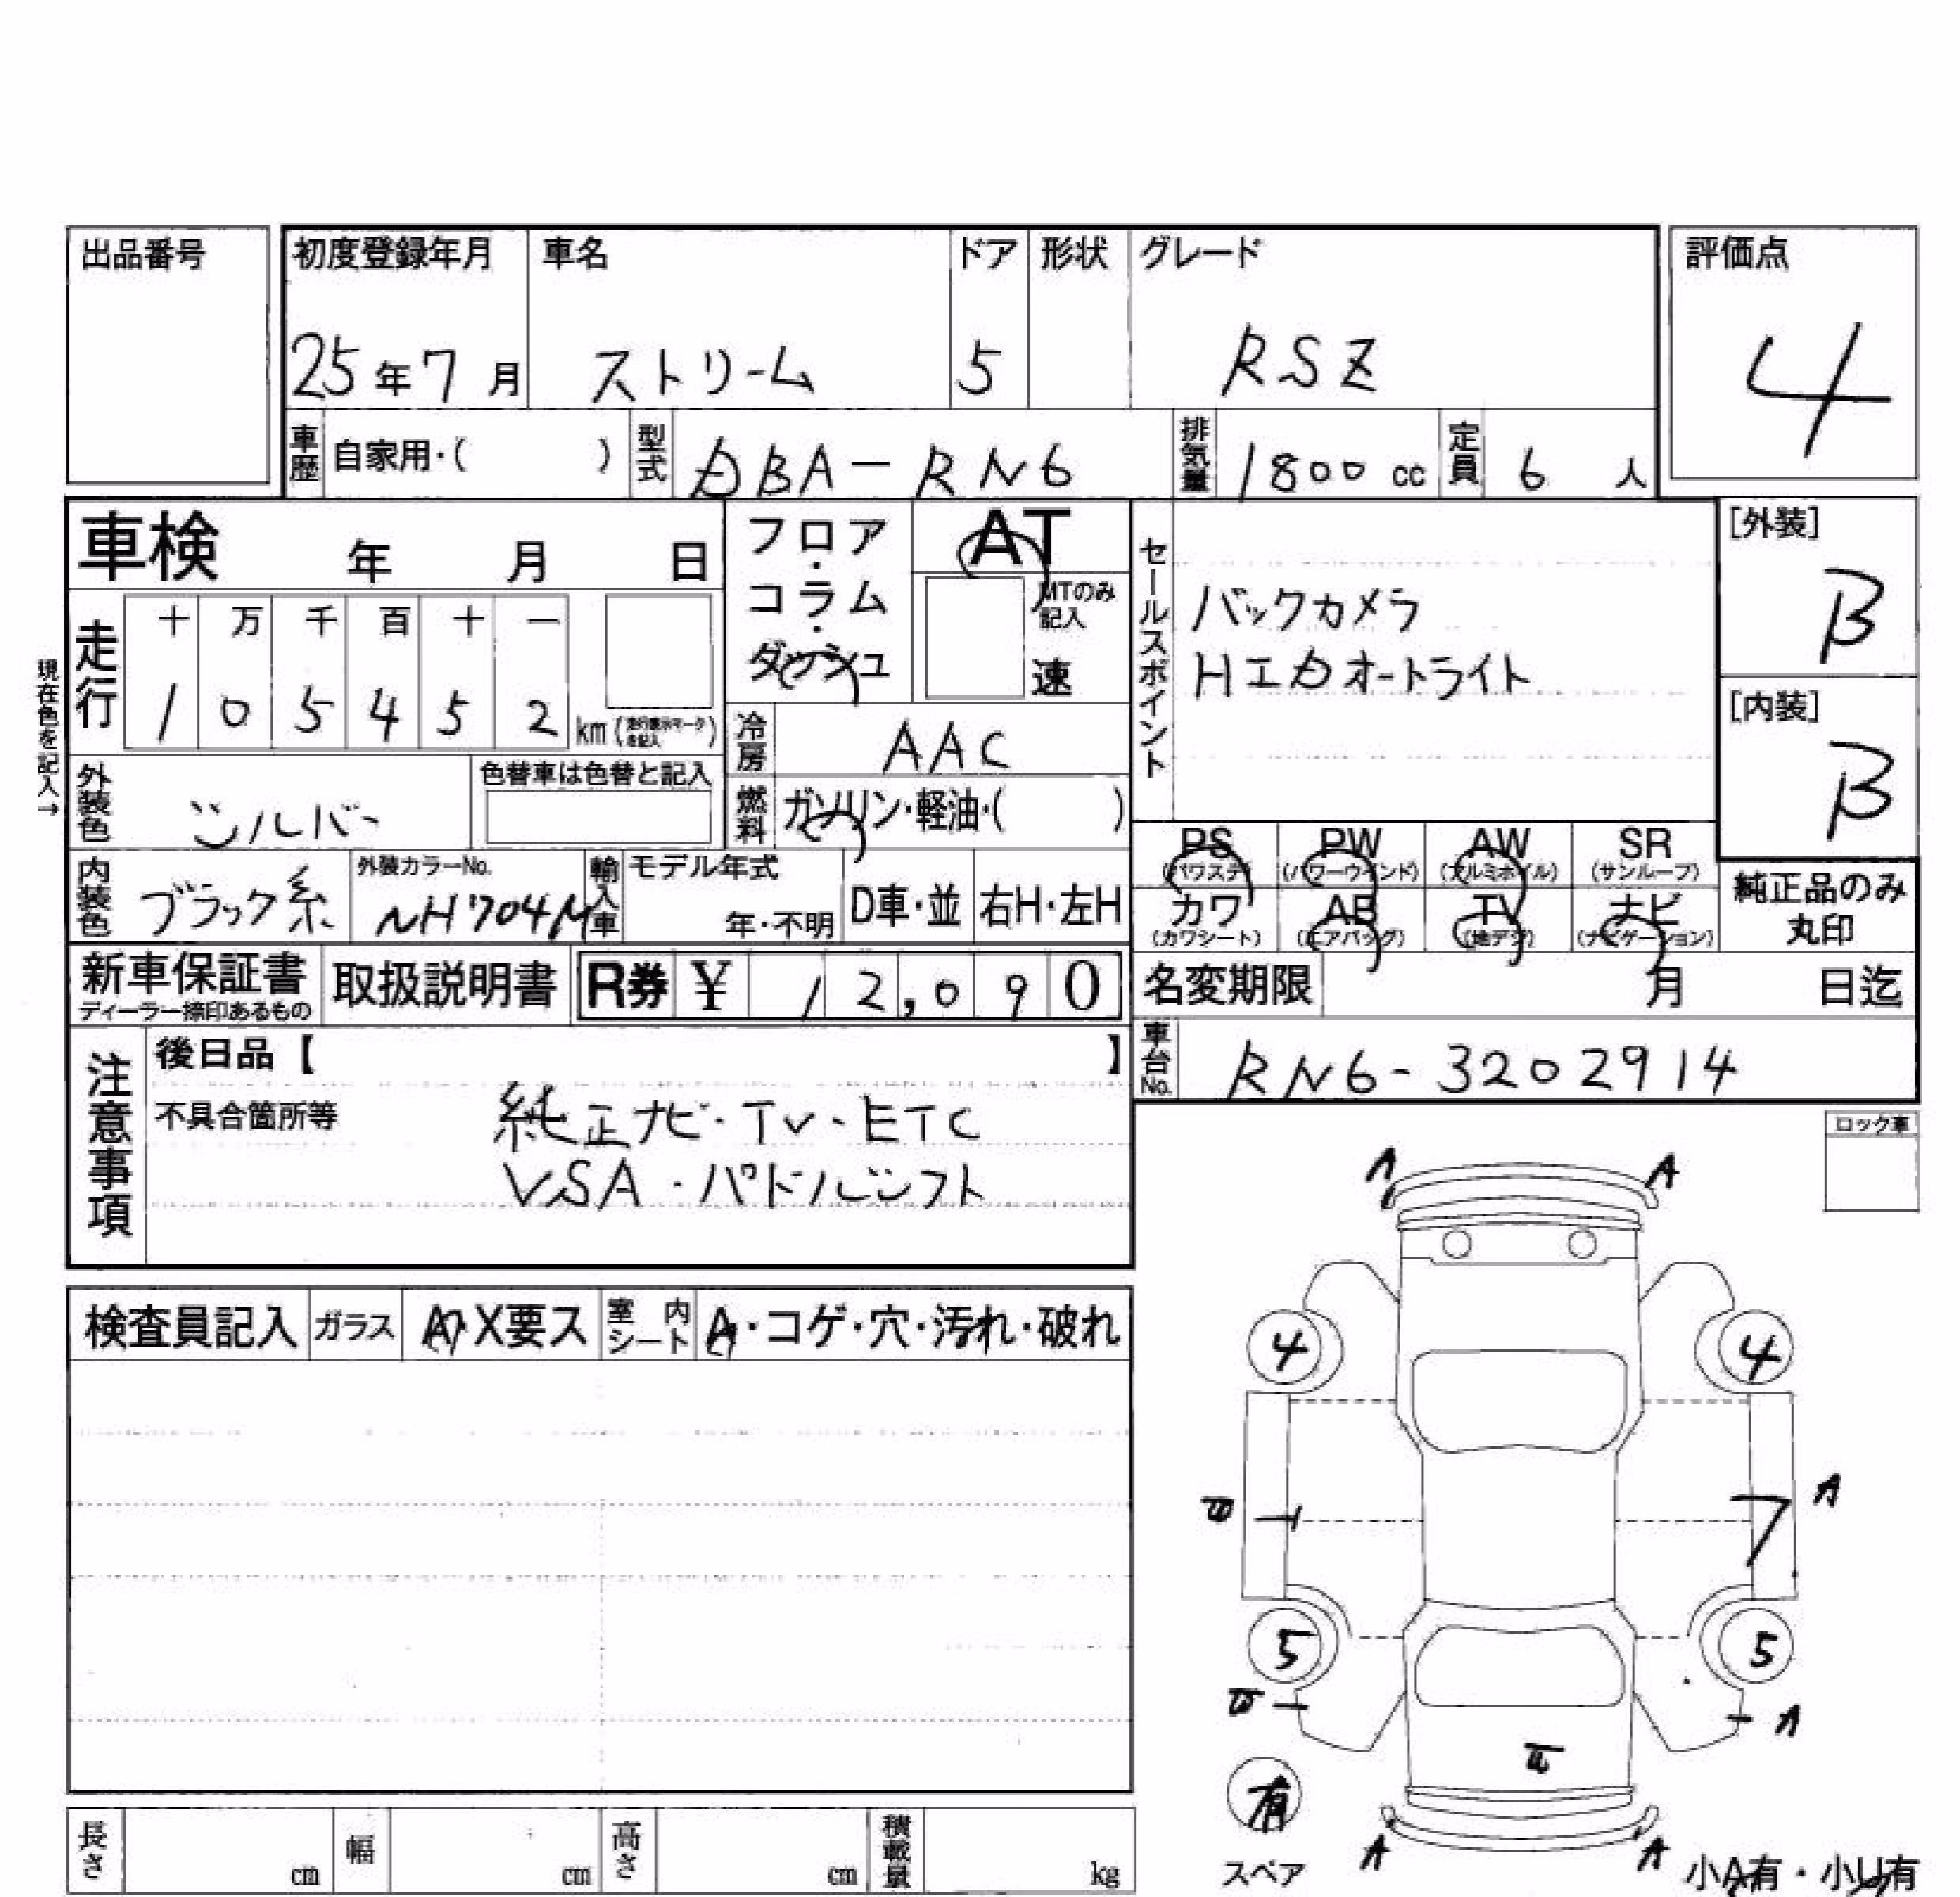 出品番号
初度登録年月 車名 ドア 形状 グレード
評価点
25年7月 ストリーム 5 RSZ
4
車歴 自家用・( ) 型式 DBA-RN6 排気量 1800 cc 定員 6 人
車検 年 月 日
フロア・コラム・ダッシュ
AT
MTのみ記入
速
セールスポイント
バックカメラ
HID オートライト
[外装]
B
[内装]
B
現在色を記入→
走行 十 万 千 百 十 一
1 0 5 4 5 2 km
冷房 AAC
外装色 シルバー 色替車は色替と記入
燃料 ガソリン・軽油・( )
PS PW AW SR
(パワステ) (パワーウインド) (アルミホイル) (サンルーフ)
カワ AB TV ナビ
(カワシート) (エアバッグ) (地デジ) (ナビゲーション)
純正品のみ
丸印
内装色 ブラック系 外装カラーNo. NH704M 輸入車 モデル年式 年・不明 D車・並 右H・左H
新車保証書 取扱説明書 R券 ¥ 12,090
ディーラー捺印あるもの
名変期限 月 日迄
車台No. RN6-3202914
注意事項
後日品【 】
不具合箇所等
純正ナビ・TV・ETC
VSA・パドルシフト
ロック車
A A
検査員記入 ガラス A・X要ス 室内シート A・コゲ・穴・汚れ・破れ
4 4
A
5 5
A
有
スペア
A A
小A有・小U有
長さ cm 幅 cm 高さ cm 積載量 kg